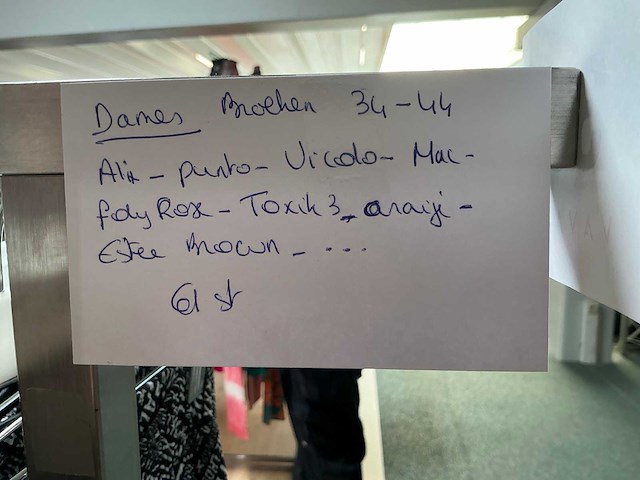 Dames Broeken 34-44
Alix - punto - Vicolo - Mac -
Lady Rox - Toxik 3 - araiji -
Estee Brown - ...
61 st